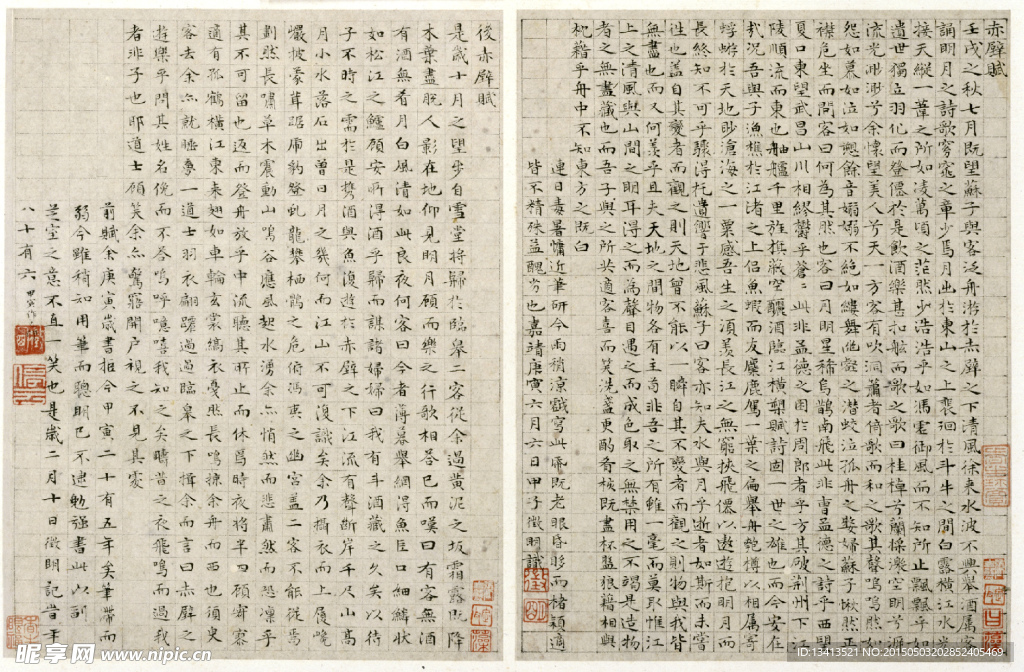 赤壁賦
壬戌之秋七月既望蘇子與客泛舟游於赤壁之下清風徐來水波不興舉酒属客
誦明月之詩歌窈窕之章少焉月出於東山之上裵洄於斗牛之間白露橫江水光
接天縱一葦之所如凌萬頃之茫然浩浩乎如馮虛御風而不知所止飄飄乎如
遺世獨立羽化而登僊於是飲酒樂甚扣舷而歌之歌曰桂棹兮蘭槳擊空明兮泝
流光渺渺兮余懷望美人兮天一方客有吹洞蕭者倚歌而和之其聲嗚嗚然如
怨如慕如泣如愬餘音嫋嫋不絕如縷舞幽壑之潛蛟泣孤舟之嫠婦蘇子愀然正
襟危坐而問客曰何為其然也客曰月明星稀烏鵲南飛此非曹孟德之詩乎西望
夏口東望武昌山川相繆鬱乎蒼〻此非孟德之困於周郎者乎方其破荊州下江
陵順流而東也舳艫千里旌旗蔽空釃酒臨江橫槊賦詩固一世之雄也而今安在
哉况吾與子漁樵於江渚之上侶魚蝦而友麋鹿駕一葉之扁舟舉匏樽以相属寄
蜉蝣於天地眇滄海之一粟感吾生之須臾羨長江之無窮挾飛僊以遨遊抱明月而
長終知不可乎驟得托遺響于悲風蘇子曰客亦知夫水與月乎逝者如斯而未嘗
往也盖自其變者而觀之則天地曾不能以一瞬自其不變者而觀之則物與我皆
無盡也而又何羨乎且夫天地之間物各有主苟非吾之所有雖一毫而莫取惟江
上之清風與山間之明月耳得之而為聲目遇之而成色取之無禁用之不竭是造物
者之無盡藏也而吾子與之所共適客喜而笑洗盞更酌肴核既盡杯盤狼籍相與
枕藉乎舟中不知東方之既白
連日毒暑慵近筆研今雨稍涼戲寫此廊既老眼昏眵而楮穎適
皆不精殊益醜劣也嘉靖庚寅六月六日甲子徵明識
後赤壁賦
是歲十月之望步自雪堂將歸於臨皋二客從余過黃泥之坂霜露既降
木葉盡脫人影在地仰見明月顧而樂之行歌相答已而嘆曰有客無酒
有酒無肴月白風清如此良夜何客曰今者薄暮舉網得魚巨口細鱗狀
如松江之鱸顧安所得酒乎歸而謀諸婦婦曰我有斗酒藏之久矣以待
子不時之需於是携酒與魚復遊於赤壁之下江流有聲斷岸千尺山高
月小水落石出曾日月之幾何而江山不可復識矣余乃攝衣而上履巉
巖披蒙茸踞虎豹登虬龍攀栖鶻之危俯馮夷之幽宮盖二客不能從焉
劃然長嘯草木震動山鳴谷應風起水湧余亦悄然而悲肅然而恐凜乎
其不可留也返而登舟放乎中流聽其所止而休焉時夜將半四顧寂寥
適有孤鶴橫江東來翅如車輪玄裳縞衣戛然長鳴掠余舟而西也須臾
客去余亦就睡夢一道士羽衣翩躚過臨皋之下揖余而言曰赤壁之
遊樂乎問其姓名俛而不答嗚呼噫嘻我知之矣疇昔之夜飛鳴而過我
者非子也耶道士顧笑余亦驚寤開户視之不見其處
前賦余庚寅歲書抵今甲寅二十有五年矣筆滯而
弱今雖稍知用筆而聰明已不逮勉强書此以副
芝室之意不直一笑也是歲二月十日徵明記昔年
八十有六
昵享网 www.nipic.cn
ID:13413521 NO:20150503202852405469